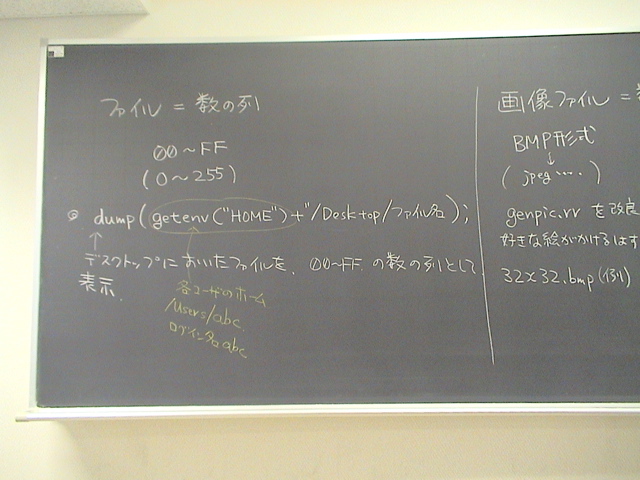 ファイル = 数の列
00～FF
(0～255)
◎ dump(getenv("HOME")+"/Desktop/ファイル名);
デスクトップにおいたファイルを、00～FF の数の列として
表示.
各ユーザのホーム
/Users/abc.
ログイン名abc
画像ファイル =
BMP形式
↓
(jpeg....)
genpic.rr を改良
好きな絵がかけるはず
32x32.bmp(例)